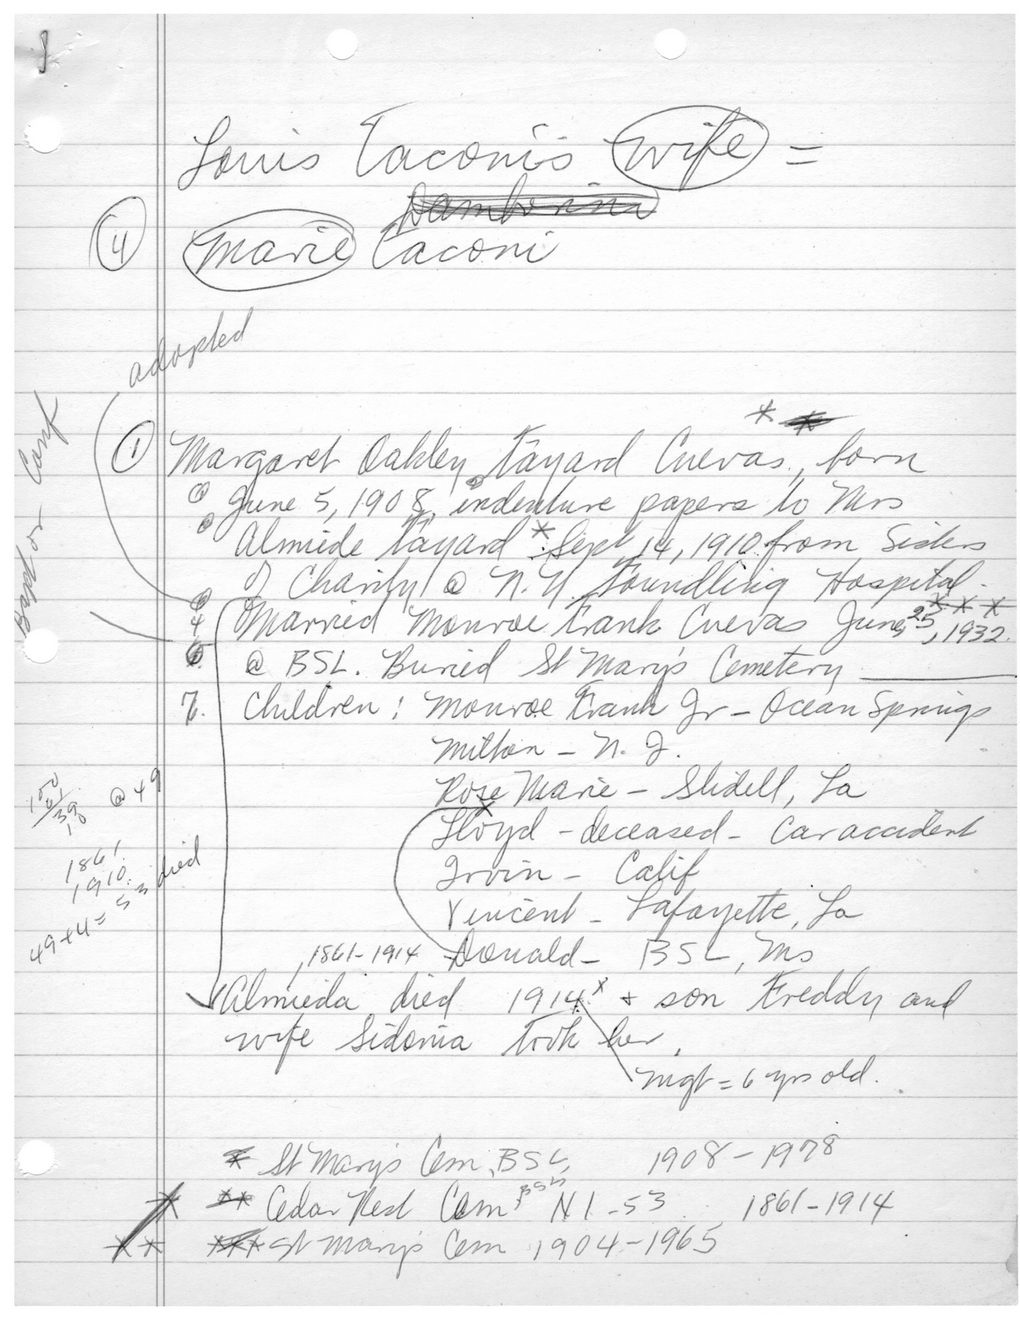 Louis Taconi's wife =
Damborini
4 Marie Taconi
adopted
Bapt or Conf
* *
1 Margaret Oakley Fayard Cuevas, born
June 5, 1908, indenture papers to Mrs
Almiede Fayard * Sept 14, 1910 from Sisters
of Charity @ N.Y. Foundling Hospital.
* * *
4 Married Monroe Frank Cuevas June 25, 1932
6. @ BSL. Buried St Mary's Cemetery
7. Children: Monroe Frank Jr - Ocean Springs
Milton - N. J.
Rose Marie - Slidell, La
Lloyd - deceased - car accident
Irvin - Calif
Vincent - Lafayette, La
Donald - BSL, Ms
100
61
39
10
@ 49
1861
1910
49+4 = 53 died
1861-1914
Almieda died 1914 x + son Freddy and
wife Sidonia took her.
Mgt = 6 yrs old.
* St Mary's Cem, BSL, 1908-1978
* ** Cedar Rest Cem BSL N1-53 1861-1914
** *** St Mary's Cem 1904-1965